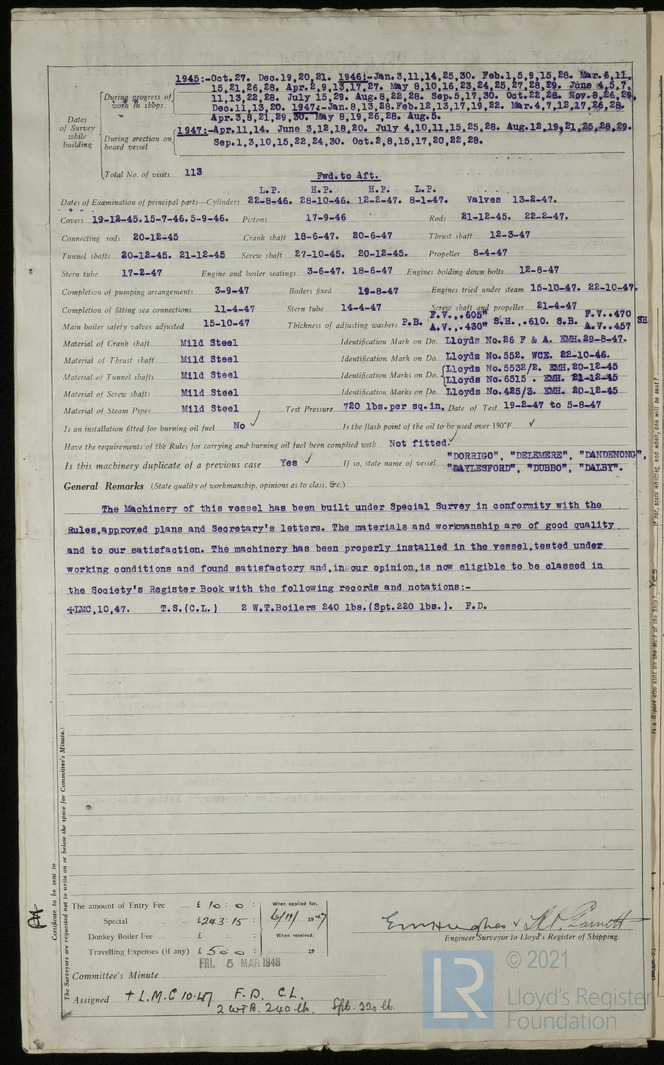 1945:-Oct.27. Dec.19,20,21. 1946:-Jan.3,11,14,25,30. Feb.1,5,9,15,28. Mar.6,11,
During progress of work in shops
15,21,26,28. Apr.2,9,13,17,27. May 8,10,16,23,24,25,27,28,29. June 4,5,7,
11,13,22,28. July 15,29. Aug.8,22,28. Sep.5,17,30. Oct.22,28. Nov.8,26,29,
Dec.11,13,20. 1947:-Jan.8,13,28.Feb.12,13,17,19,22. Mar.4,7,12,17,26,28.
Dates of Survey while building
Apr.3,8,21,29,30. May 8,19,26,28. Aug.5.
During erection on board vessel
1947:-Apr.11,14. June 3,12,18,20. July 4,10,11,15,25,28. Aug.12,19,21,25,28,29.
Sep.1,3,10,15,22,24,30. Oct.2,8,15,17,20,22,28.
Total No. of visits 113
Fwd.to Aft.
L.P. H.P. H.P. L.P.
Dates of Examination of principal parts—Cylinders 22-8-46. 28-10-46. 12-2-47. 8-1-47. Valves 13-2-47.
Covers 19-12-45.15-7-46.5-9-46. Pistons 17-9-46 Rods 21-12-45. 22-2-47.
Connecting rods 20-12-45 Crank shaft 18-6-47. 20-6-47 Thrust shaft 12-3-47
Tunnel shafts 20-12-45. 21-12-45 Screw shaft 27-10-45. 20-12-45. Propeller 8-4-47
Stern tube 17-2-47 Engine and boiler seatings 3-6-47. 18-6-47 Engines holding down bolts 12-8-47
Completion of pumping arrangements 3-9-47 Boilers fixed 19-8-47 Engines tried under steam 15-10-47. 22-10-47.
Completion of fitting sea connections 11-4-47 Stern tube 14-4-47 Screw shaft and propeller 21-4-47
Main boiler safety valves adjusted 15-10-47 Thickness of adjusting washers P.B. F.V.,.605" A.V.,.430" S.H.,.610. S.B. F.V..470 A.V..457 SH
Material of Crank shaft Mild Steel Identification Mark on Do. Lloyds No.26 F & A. EMH.29-8-47.
Material of Thrust shaft Mild Steel Identification Mark on Do. Lloyds No.552. WCE. 22-10-46.
Material of Tunnel shafts Mild Steel Identification Marks on Do. Lloyds No.5532/2. EMH.20-12-45
Lloyds No.6515 . EMH. 21-12-45
Material of Screw shafts Mild Steel Identification Marks on Do. Lloyds No.425/3. EMH. 20-12-45
Material of Steam Pipes Mild Steel Test Pressure 720 lbs.per sq.in. Date of Test 19-2-47 to 5-8-47
Is an installation fitted for burning oil fuel No ✓ Is the flash point of the oil to be used over 150°F. ✓
Have the requirements of the Rules for carrying and burning oil fuel been complied with Not fitted. ✓
"DORRIGO", "DELEMERE", "DANDENONG".
Is this machinery duplicate of a previous case Yes ✓ If so, state name of vessel "DAYLESFORD", "DUBBO", "DALBY".
General Remarks (State quality of workmanship, opinions as to class, &c.)
The Machinery of this vessel has been built under Special Survey in conformity with the
Rules,approved plans and Secretary's letters. The materials and workmanship are of good quality
and to our satisfaction. The machinery has been properly installed in the vessel,tested under
working conditions and found satisfactory and,in our opinion,is now eligible to be classed in
the Society's Register Book with the following records and notations:-
+LMC,10,47. T.S.(C.L.) 2 W.T.Boilers 240 lbs.(Spt.220 lbs.). F.D.
Certificate to be sent to
The Surveyors are requested not to write on or below the space for Committee's Minute.
The amount of Entry Fee £ 10 : 0 : When applied for,
Special £243 : 15 : 6/11/ 1947
Donkey Boiler Fee £ : : When received,
Travelling Expenses (if any) £ 5 0 0 19
Engineer Surveyor to Lloyd's Register of Shipping.
FRI. 5 MAR 1948
Committee's Minute
Assigned + L.M.C 10.47 F.D. C.L.
2 WTB. 240 lb. Spt. 220 lb.
© 2021
LR
Lloyd's Register
Foundation